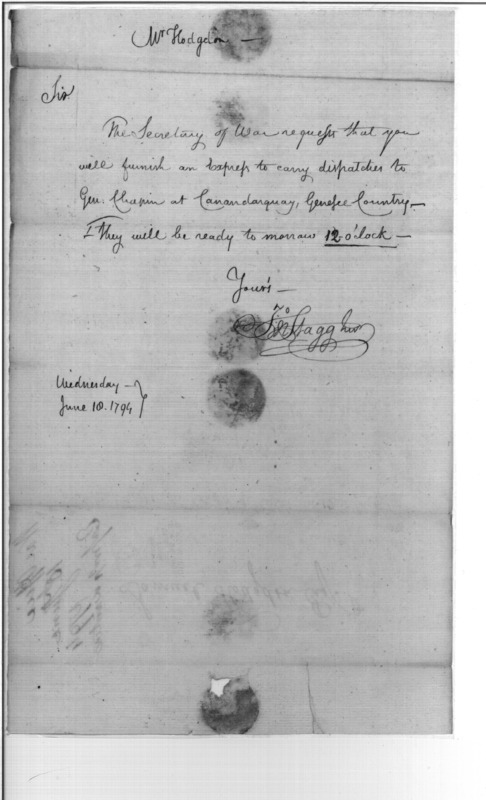 Mr Hodgdon —
Sir
The Secretary of War requests that you
will furnish an Express to carry dispatches to
Gen. Chapin at Canandarquay, Genesee Country —
They will be ready to morrow 12 o'clock —
Your's —
Jno Stagg Junr
Wednesday —
June 18. 1794
Samuel Hodgdon Esq